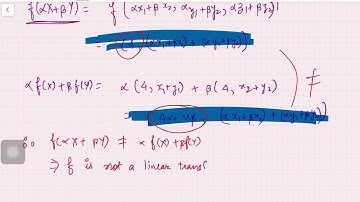 f(αX+βY) = f(αx₁+βx₂, αy₁+βy₂, αz₁+βz₂)
= (4, (αx₁+βx₂) + (αy₁+βy₂))
αf(X)+βf(Y) = α(4, x₁+y₁) + β(4, x₂+y₂) ≠
= 4α+4β, (αx₁+βx₂) + (αy₁+βy₂))
So f(αX+βY) ≠ αf(X)+βf(Y)
⇒ f is not a linear transf